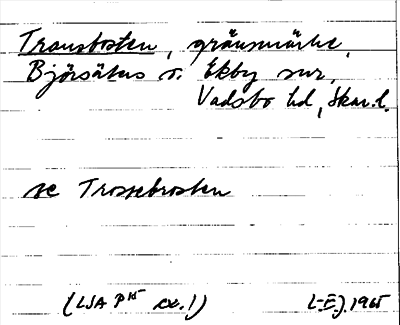 Transbosten, gränsmärke,
Björsäters o. Ekby snr,
Vadsbo hd, Skar.l.
se Trossebrosten
(LSA P 15 ex. 1)
L-E.J. 1965